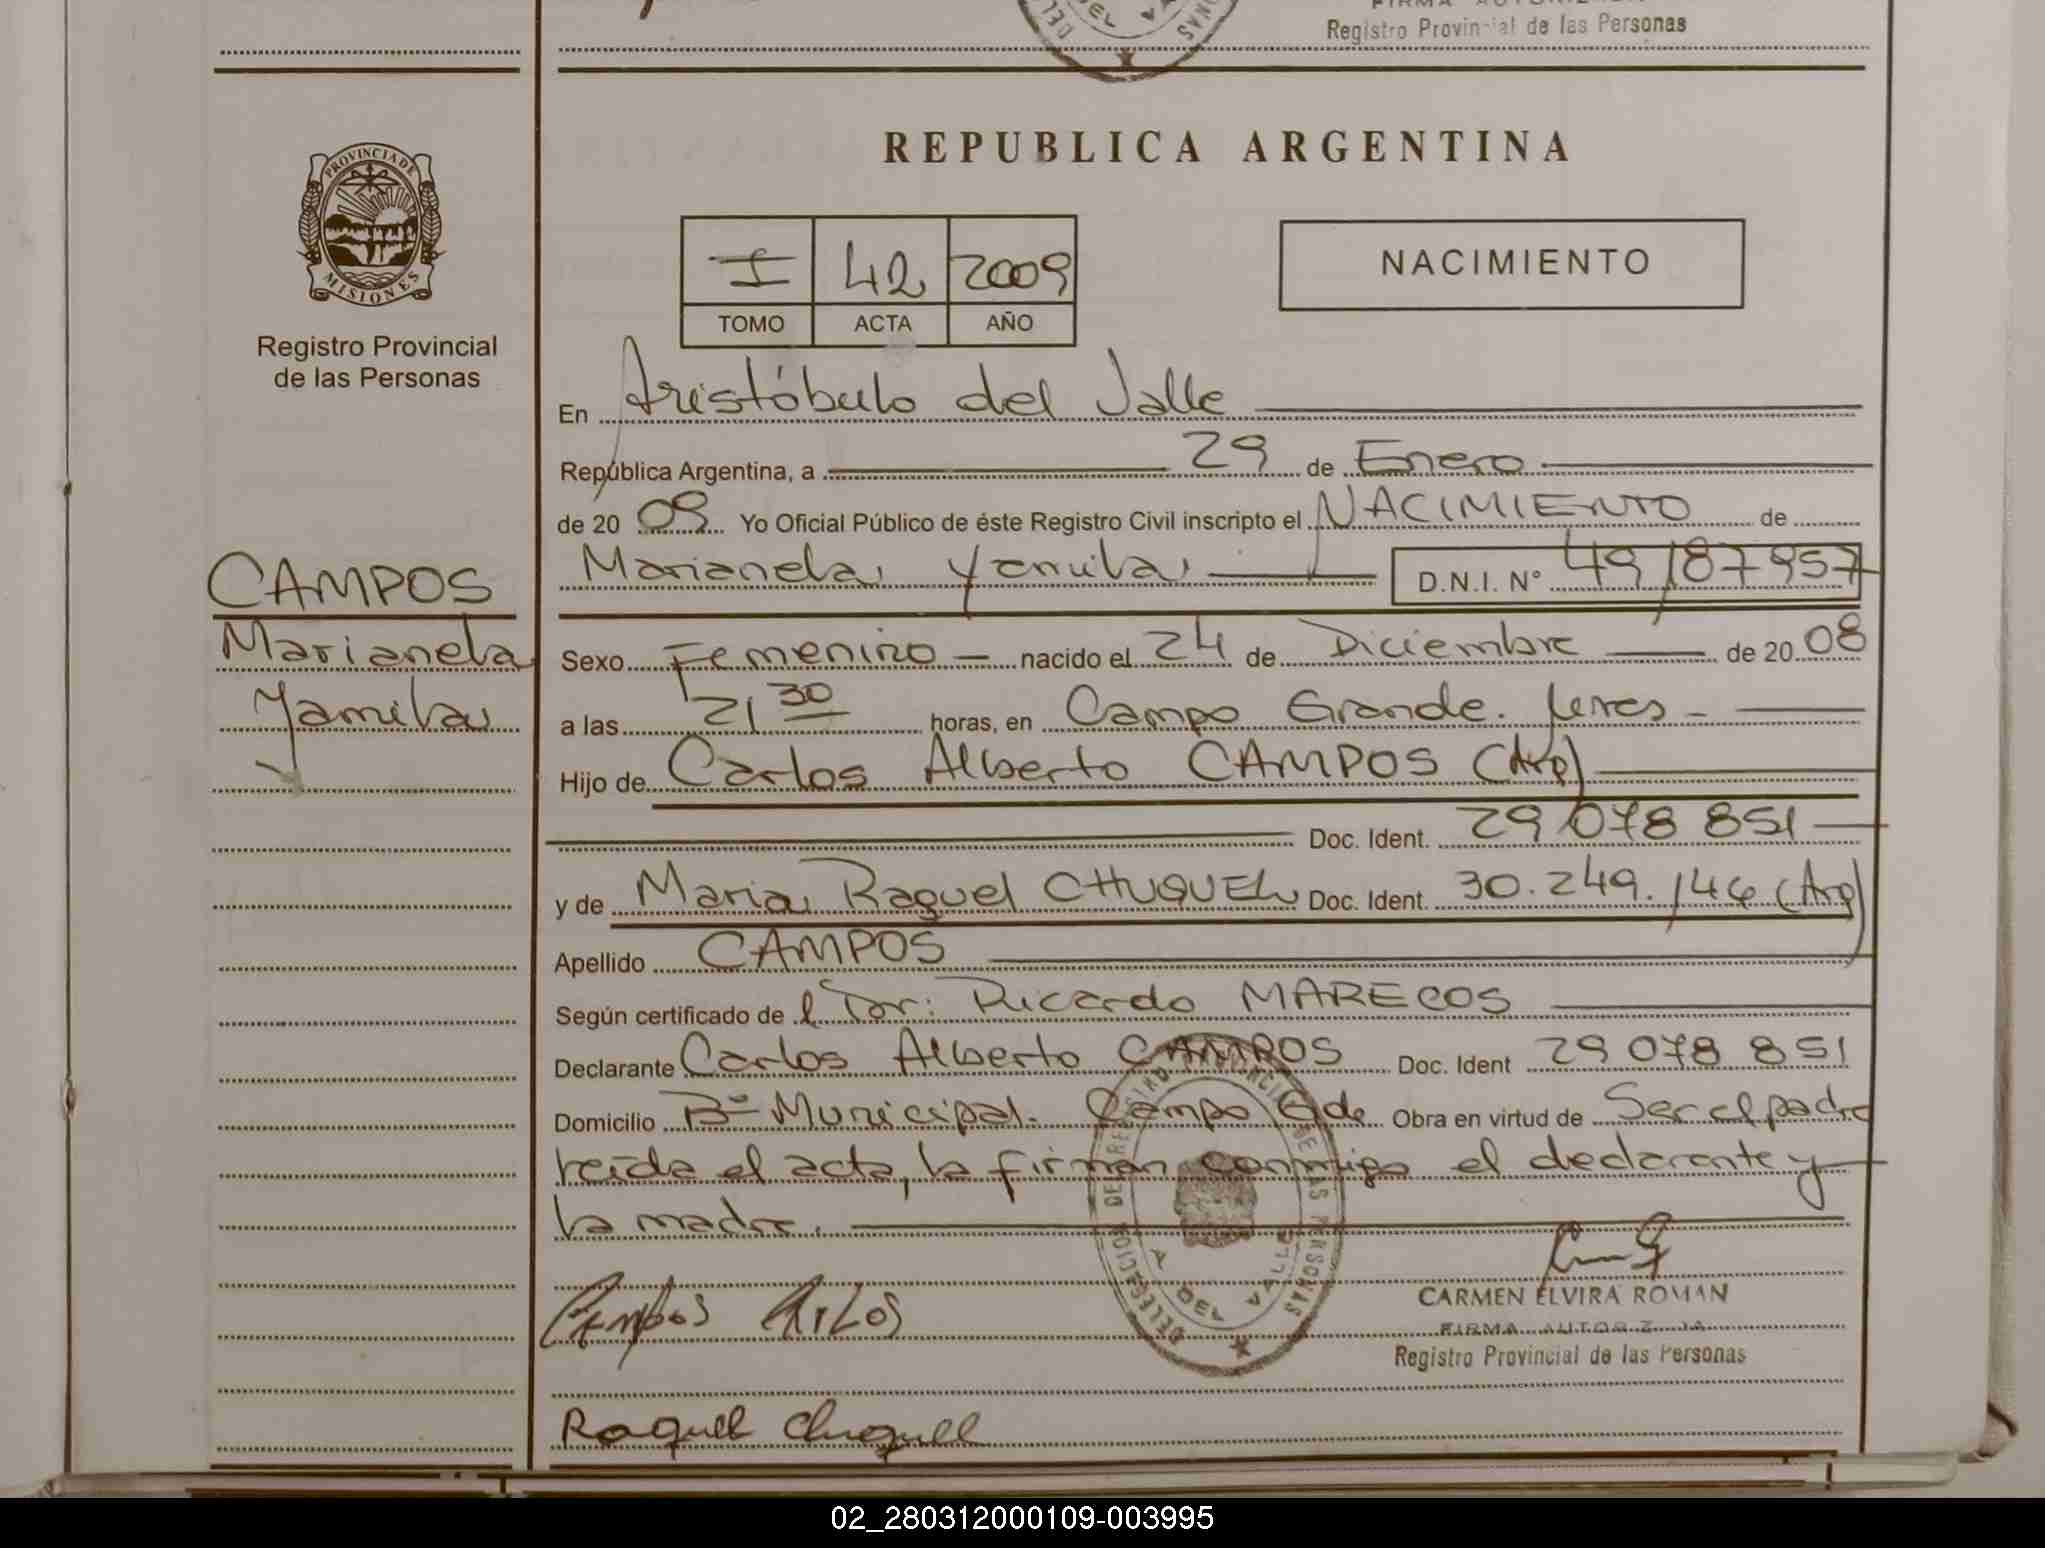 FIRMA AUTORIZADA
Registro Provincial de las Personas
DEL VA
REPUBLICA ARGENTINA
PROVINCIA DE
MISIONES
Registro Provincial
de las Personas
I 42 2009
TOMO ACTA AÑO
NACIMIENTO
En Aristóbulo del Valle
República Argentina, a 29 de Enero
de 20 09 Yo Oficial Público de éste Registro Civil inscripto el NACIMIENTO de
Marianela Yamila D.N.I. N° 49187957
CAMPOS
Marianela
Yamila
Sexo Femenino nacido el 24 de Diciembre de 20 08
a las 21 30 horas, en Campo Grande.
Hijo de Carlos Alberto CAMPOS (Arg)
Doc. Ident. 29 078 851
y de Maria Raquel CHUQUEL Doc. Ident. 30.249.146 (Arg)
Apellido CAMPOS
Según certificado de l Dr: Ricardo MARECOS
Declarante Carlos Alberto CAMPOS Doc. Ident 29 078 851
Domicilio Bº Municipal. Campo Gde Obra en virtud de Ser el padre
leída el acta, la firman conmigo el declarante y
la madre.
DELEGACION DE REGISTRO PROVINCIAL DE LAS PERSONAS
A DEL VALLE
Campos Carlos
CARMEN ELVIRA ROMAN
FIRMA AUTORIZADA
Registro Provincial de las Personas
Raquel Chuquel
02_280312000109-003995